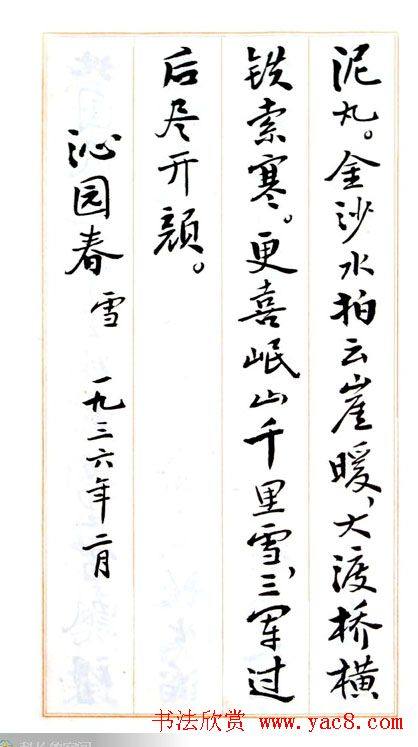 泥丸。金沙水拍云崖暖，大渡桥横
铁索寒。更喜岷山千里雪，三军过
后尽开颜。
沁园春 雪 一九三六年二月
书法欣赏 www.yac8.com